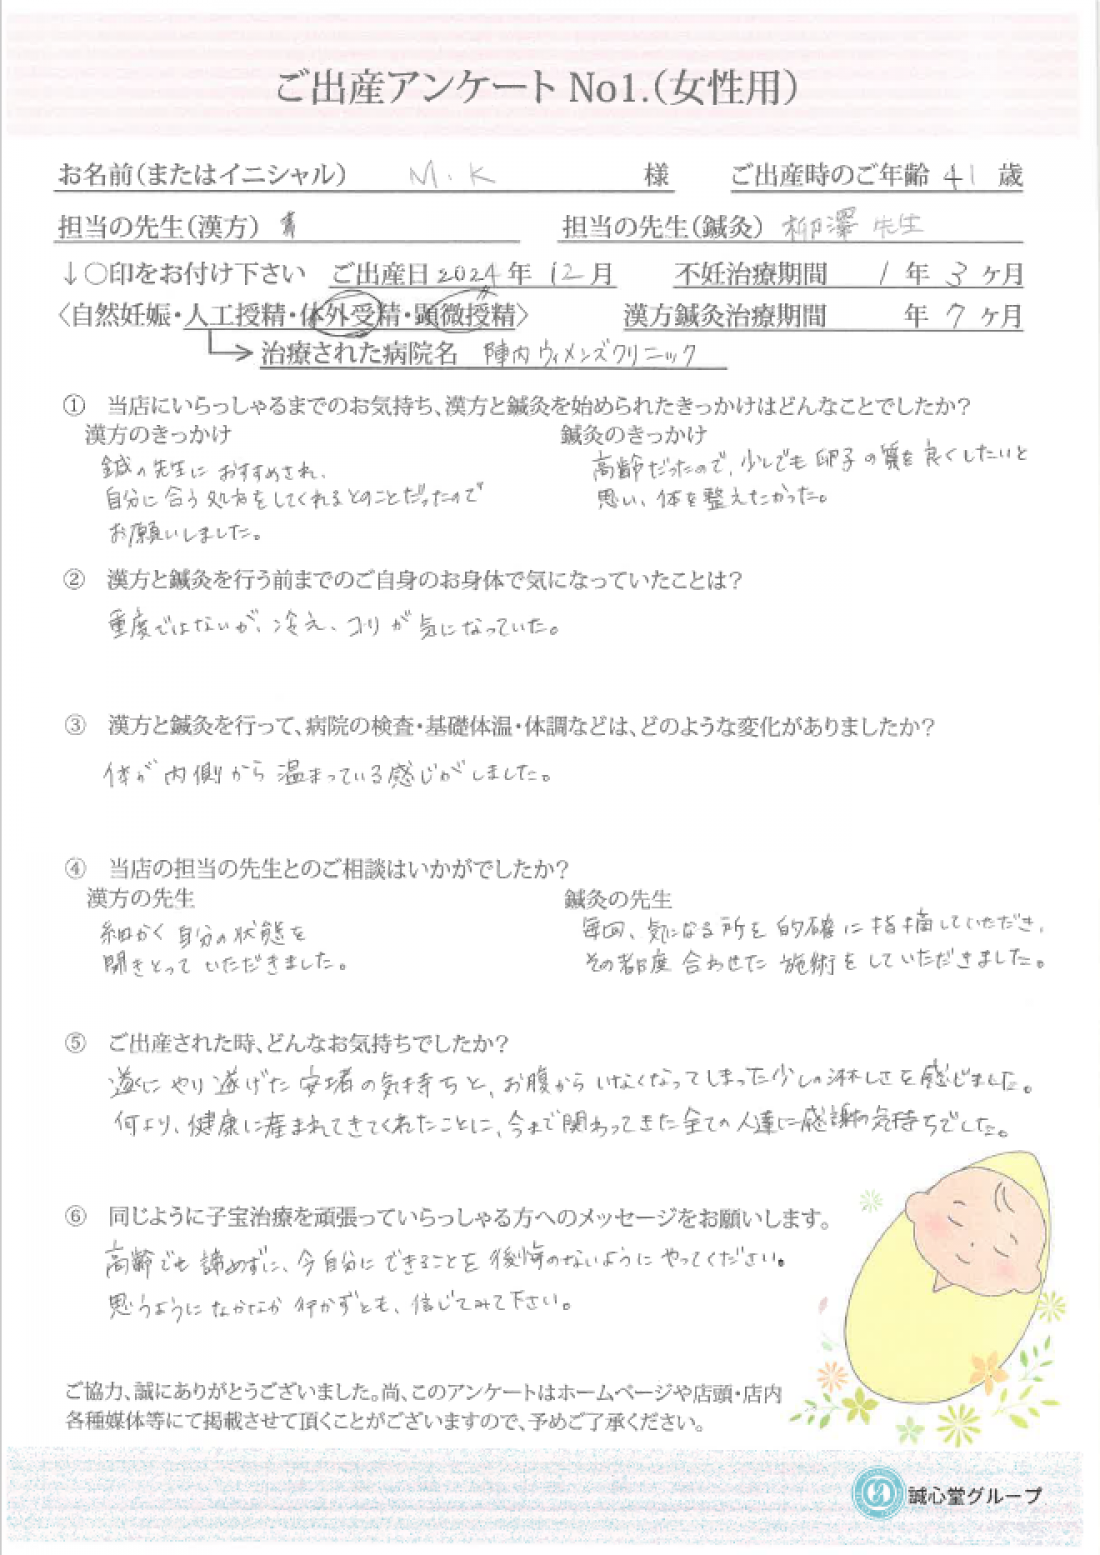 ご出産アンケート No1.(女性用)
お名前(またはイニシャル) M.K 様 ご出産時のご年齢 41 歳
担当の先生(漢方) 担当の先生(鍼灸) 柳澤 先生
↓○印をお付け下さい ご出産日 2024 年 12 月 不妊治療期間 1 年 3 ヶ月
〈自然妊娠・人工授精・体外受精・顕微授精〉 漢方鍼灸治療期間 年 7 ヶ月
治療された病院名 陣内ウィメンズクリニック
① 当店にいらっしゃるまでのお気持ち、漢方と鍼灸を始められたきっかけはどんなことでしたか?
漢方のきっかけ
鍼の先生におすすめされ、
自分に合う処方をしてくれるとのことだったので
お願いしました。
鍼灸のきっかけ
高齢だったので、少しでも卵子の質を良くしたいと
思い、体を整えたかった。
② 漢方と鍼灸を行う前までのご自身のお身体で気になっていたことは?
重度ではないが、冷え、コリが気になっていた。
③ 漢方と鍼灸を行って、病院の検査・基礎体温・体調などは、どのような変化がありましたか?
体が内側から温まっている感じがしました。
④ 当店の担当の先生とのご相談はいかがでしたか?
漢方の先生
細かく自分の状態を
聞きとっていただきました。
鍼灸の先生
毎回、気になる所を的確に指摘していただき、
その都度合わせた施術をしていただきました。
⑤ ご出産された時、どんなお気持ちでしたか?
遂にやり遂げた安堵の気持ちと、お腹からいなくなってしまった少しの淋しさを感じました。
何より、健康に産まれてきてくれたことに、今まで関わってきた全ての人達に感謝の気持ちでした。
⑥ 同じように子宝治療を頑張っていらっしゃる方へのメッセージをお願いします。
高齢でも諦めずに、今自分にできることを後悔のないようにやってください。
思うようになかなか行かずとも、信じてみて下さい。
ご協力、誠にありがとうございました。尚、このアンケートはホームページや店頭・店内
各種媒体等にて掲載させて頂くことがございますので、予めご了承ください。
誠心堂グループ